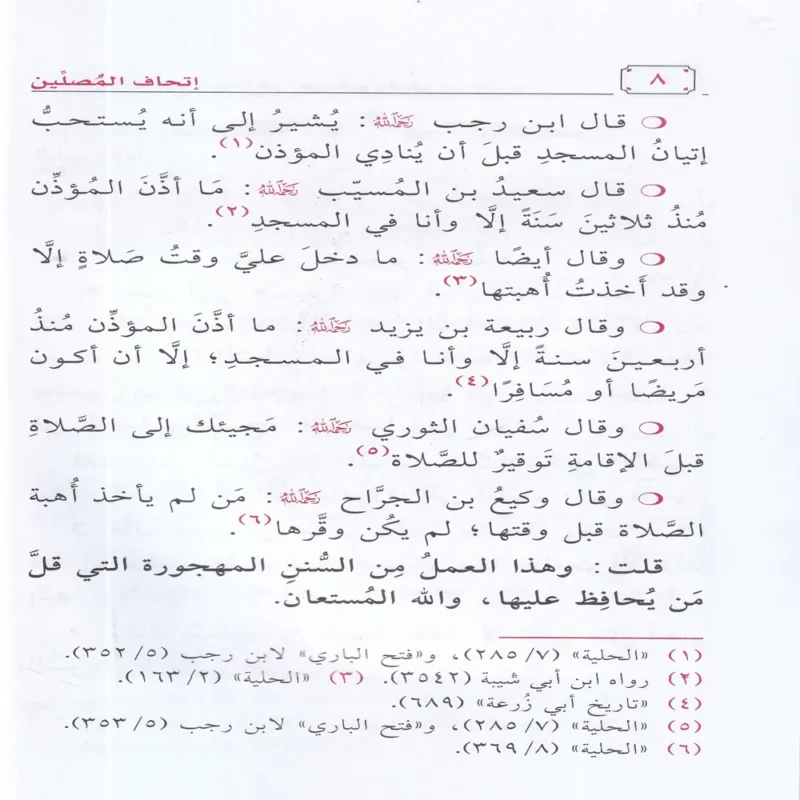 ٨
إتحاف المُصلِّين
❍ قال ابن رجب رَحِمَهُ اللَّهُ : يُشيرُ إلى أنه يُستحبُّ
إتيانُ المسجدِ قبلَ أن يُنادِي المؤذن(١).
❍ قال سعيدُ بن المُسيّب رَحِمَهُ اللَّهُ : مَا أذَّنَ المُؤذِّن
مُنذُ ثلاثينَ سَنَةً إلَّا وأنا في المسجدِ(٢).
❍ وقال أيضًا رَحِمَهُ اللَّهُ : ما دخلَ عليَّ وقتُ صَلاةٍ إلَّا
وقد أَخذتُ أُهبتها(٣).
❍ وقال ربيعة بن يزيد رَحِمَهُ اللَّهُ : ما أذَّنَ المؤذِّن مُنذُ
أربعينَ سنةً إلَّا وأنا في المسجدِ؛ إلَّا أن أكون
مَريضًا أو مُسَافِرًا(٤).
❍ وقال سُفيان الثوري رَحِمَهُ اللَّهُ : مَجيئك إلى الصَّلاةِ
قبلَ الإقامةِ تَوقيرٌ للصَّلاة(٥).
❍ وقال وكيعُ بن الجرَّاح رَحِمَهُ اللَّهُ : مَن لم يأخذ أُهبة
الصَّلاة قبل وقتها؛ لم يكُن وقَّرها(٦).
قلت: وهذا العملُ مِن السُّننِ المهجورة التي قلَّ
مَن يُحافِظ عليها، والله المُستعان.
(١) «الحلية» (٧/ ٢٨٥)، و«فتح الباري» لابن رجب (٥/ ٣٥٢).
(٢) رواه ابن أبي شيبة (٣٥٤٢). (٣) «الحلية» (٢/ ١٦٣).
(٤) «تاريخ أبي زُرعة» (٦٨٩).
(٥) «الحلية» (٧/ ٢٨٥)، و«فتح الباري» لابن رجب (٥/ ٣٥٣).
(٦) «الحلية» (٨/ ٣٦٩).